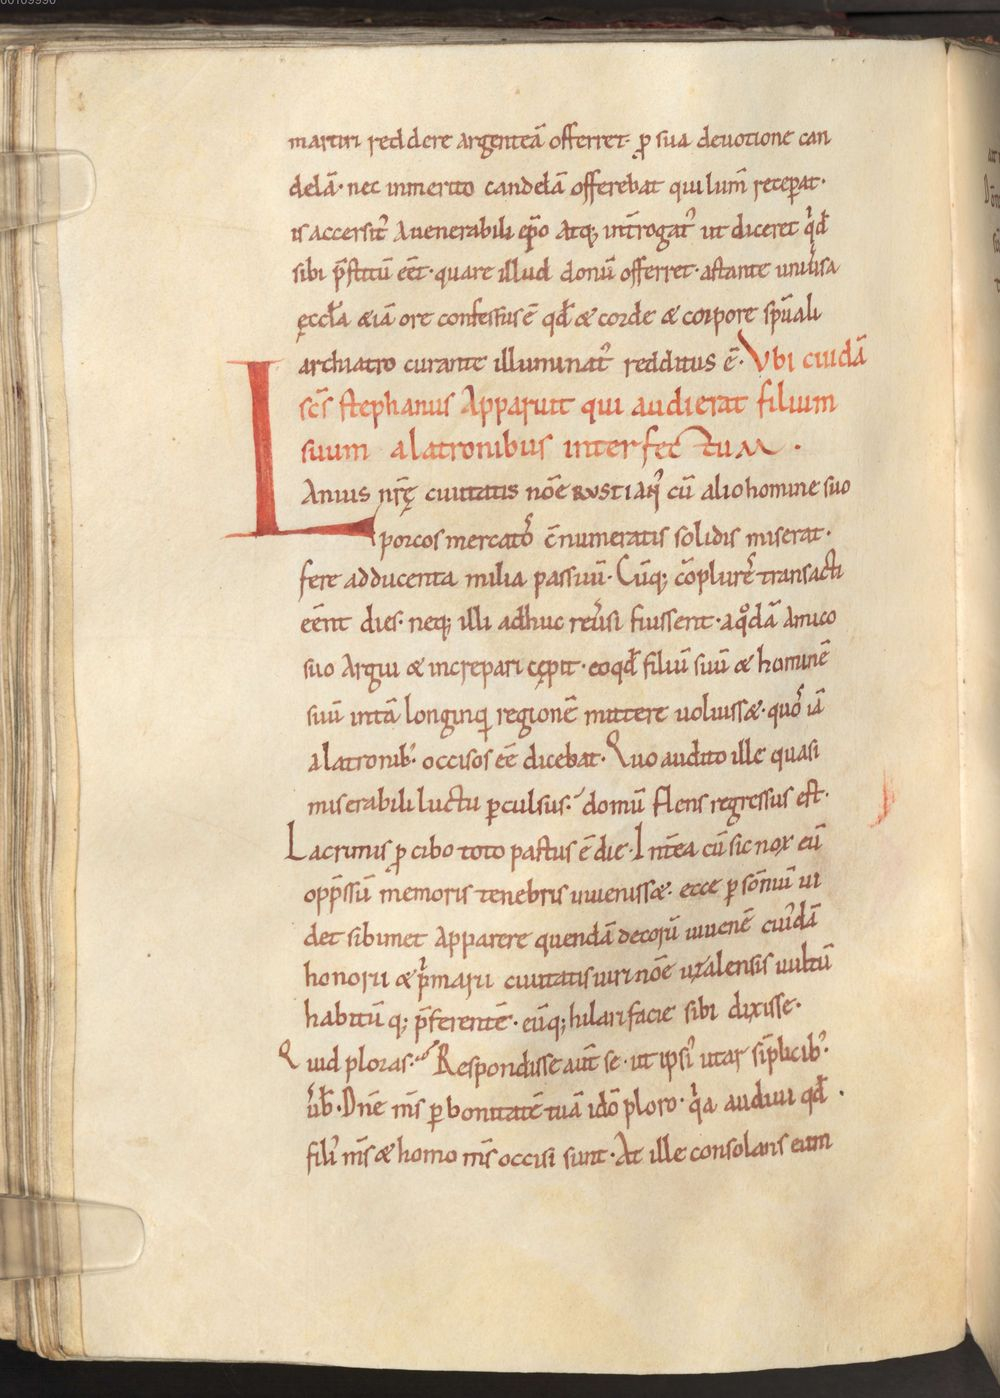 00109990
martiri reddere argenteā offerret· ꝓ sua deuotione can
delā· nec inmerito candelā offerebat qui lum̄ receperat·
is accersit᷒ a uenerabili ep̄o atq; int̄rogat᷒ ut diceret qd̄
sibi p̄stitū eēt· quare illud donū offerret· astante uniūsa
ęccl̄a & iā ore confessus ē qd̄ & corde & corpore sp̄uali
archiatro curante illuminat᷒ redditus ē· Vbi cuidā
sc̄s stephanus apparuit qui audierat filium
suum a latronibus interfectum·
Lanius nr̄ę ciuitatis nōe rustian᷒ cū alio homine suo
porcos mercato᷒ c̄ numeratis solidis miserat·
fere adducenta milia passuū· Cūq; cōplure᷒ transacti
eēnt dies· neq; illi adhuc reūsi fuissent· a qͦdā amico
suo argui & increpari cępit· eo qd̄ filiū suū & hominē
suū intā longinq̨ regionē mittere uoluiss&· quo᷒ iā
a latronib᷒ occisos eē dicebat· Quo audito ille quasi
miserabili luctu ꝑculsus· domū flens regressus est·
Lacrimis ꝓ cibo toto pastus ē die· Int̄ea cū sic nox eū
opp̄ssū memoris tenebris inueniss&· ecce ꝑ sōniū ui
det sibimet apparere quendā decorū iuuenē cuidā
honorii & pͥmarii ciuitatis uiri nōe uzalensis uultū
habitūq; p̄ferentē· eūq; hilari facie sibi dixisse·
Quid ploras· Respondisse aūt se· ut ipsi᷒ utar simplicib᷒·
ūb̄· Dn̄e m̄s ꝑ bonitatē tuā idō ploro· qͥa audiui qd̄·
fili᷒ m̄s & homo m̄s occisi sunt· At ille consolans eum